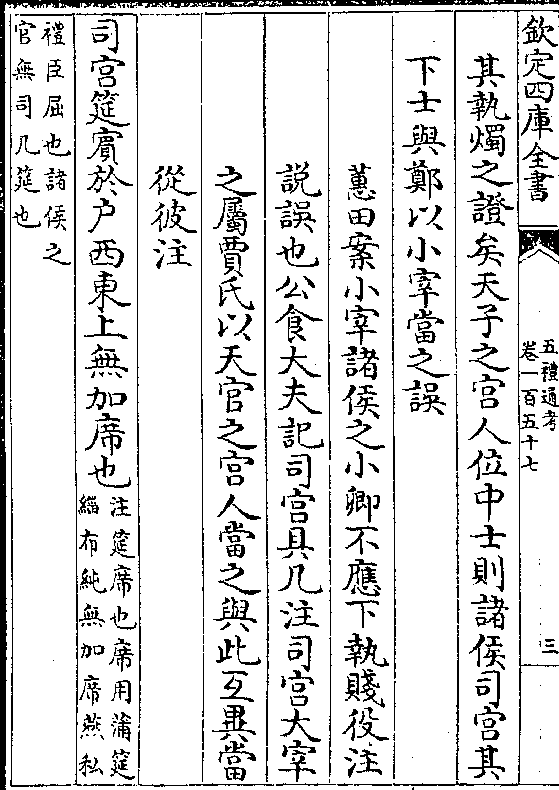 欽定四庫全書
五禮通考
卷一百五十七
三
其執燭之證矣天子之宮人位中士則諸侯司宮其
下士與鄭以小宰當之誤
蕙田案小宰諸侯之小卿不應下執賤役注
説誤也公食大夫記司宮具几注司宮大宰
之屬賈氏以天官之宮人當之與此互異當
從彼注
司宮筵賓於户西東上無加席也
注筵席也席用蒲筵
緇布純無加席燕私
禮臣屈也諸侯之
官無司几筵也